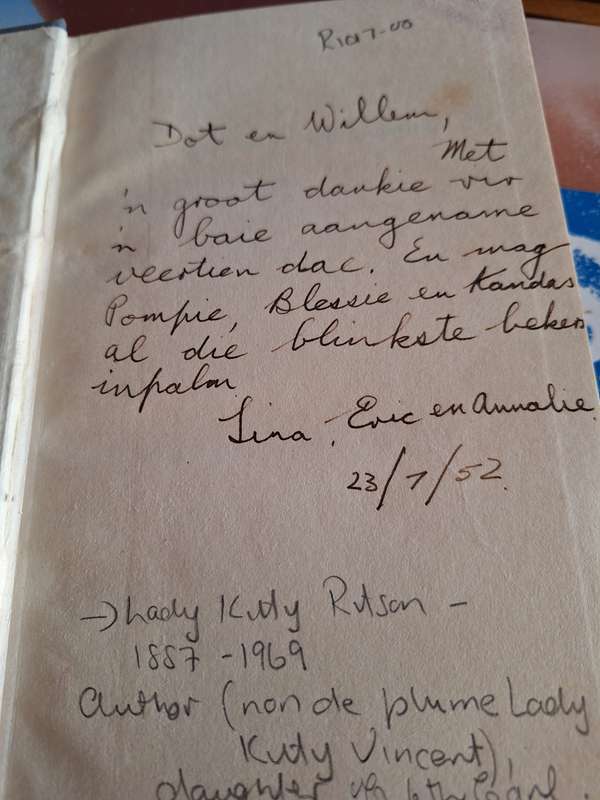 R107-00
Dot en Willem,
Met
'n groot dankie vir
'n baie aangename
veertien dae. En mag
Pompie, Blessie en Kandas
al die blinkste bekers
inpalm.
Lina, Eric en Annalie.
23/7/52.
→ Lady Kitty Ritson -
1887 - 1969
Author (non de plume Lady
Kitty Vincent),
daughter of 6th Earl